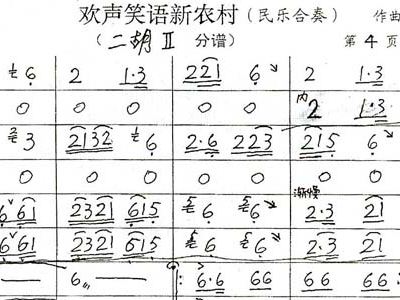 欢声笑语新农村（民乐合奏） 作曲
（二胡Ⅱ 分谱） 第4页
6 2 1·3 221 6 2 1·3
0 0 0 0 0 内2 1·3
3 2132 6 2·6 223 215 6
0 0 0 0 0 0 0
渐慢
661 2321 615 6 6 2·3 21
661 2321 615 6 6 2·3 21
6 — 6·6 66 66 66